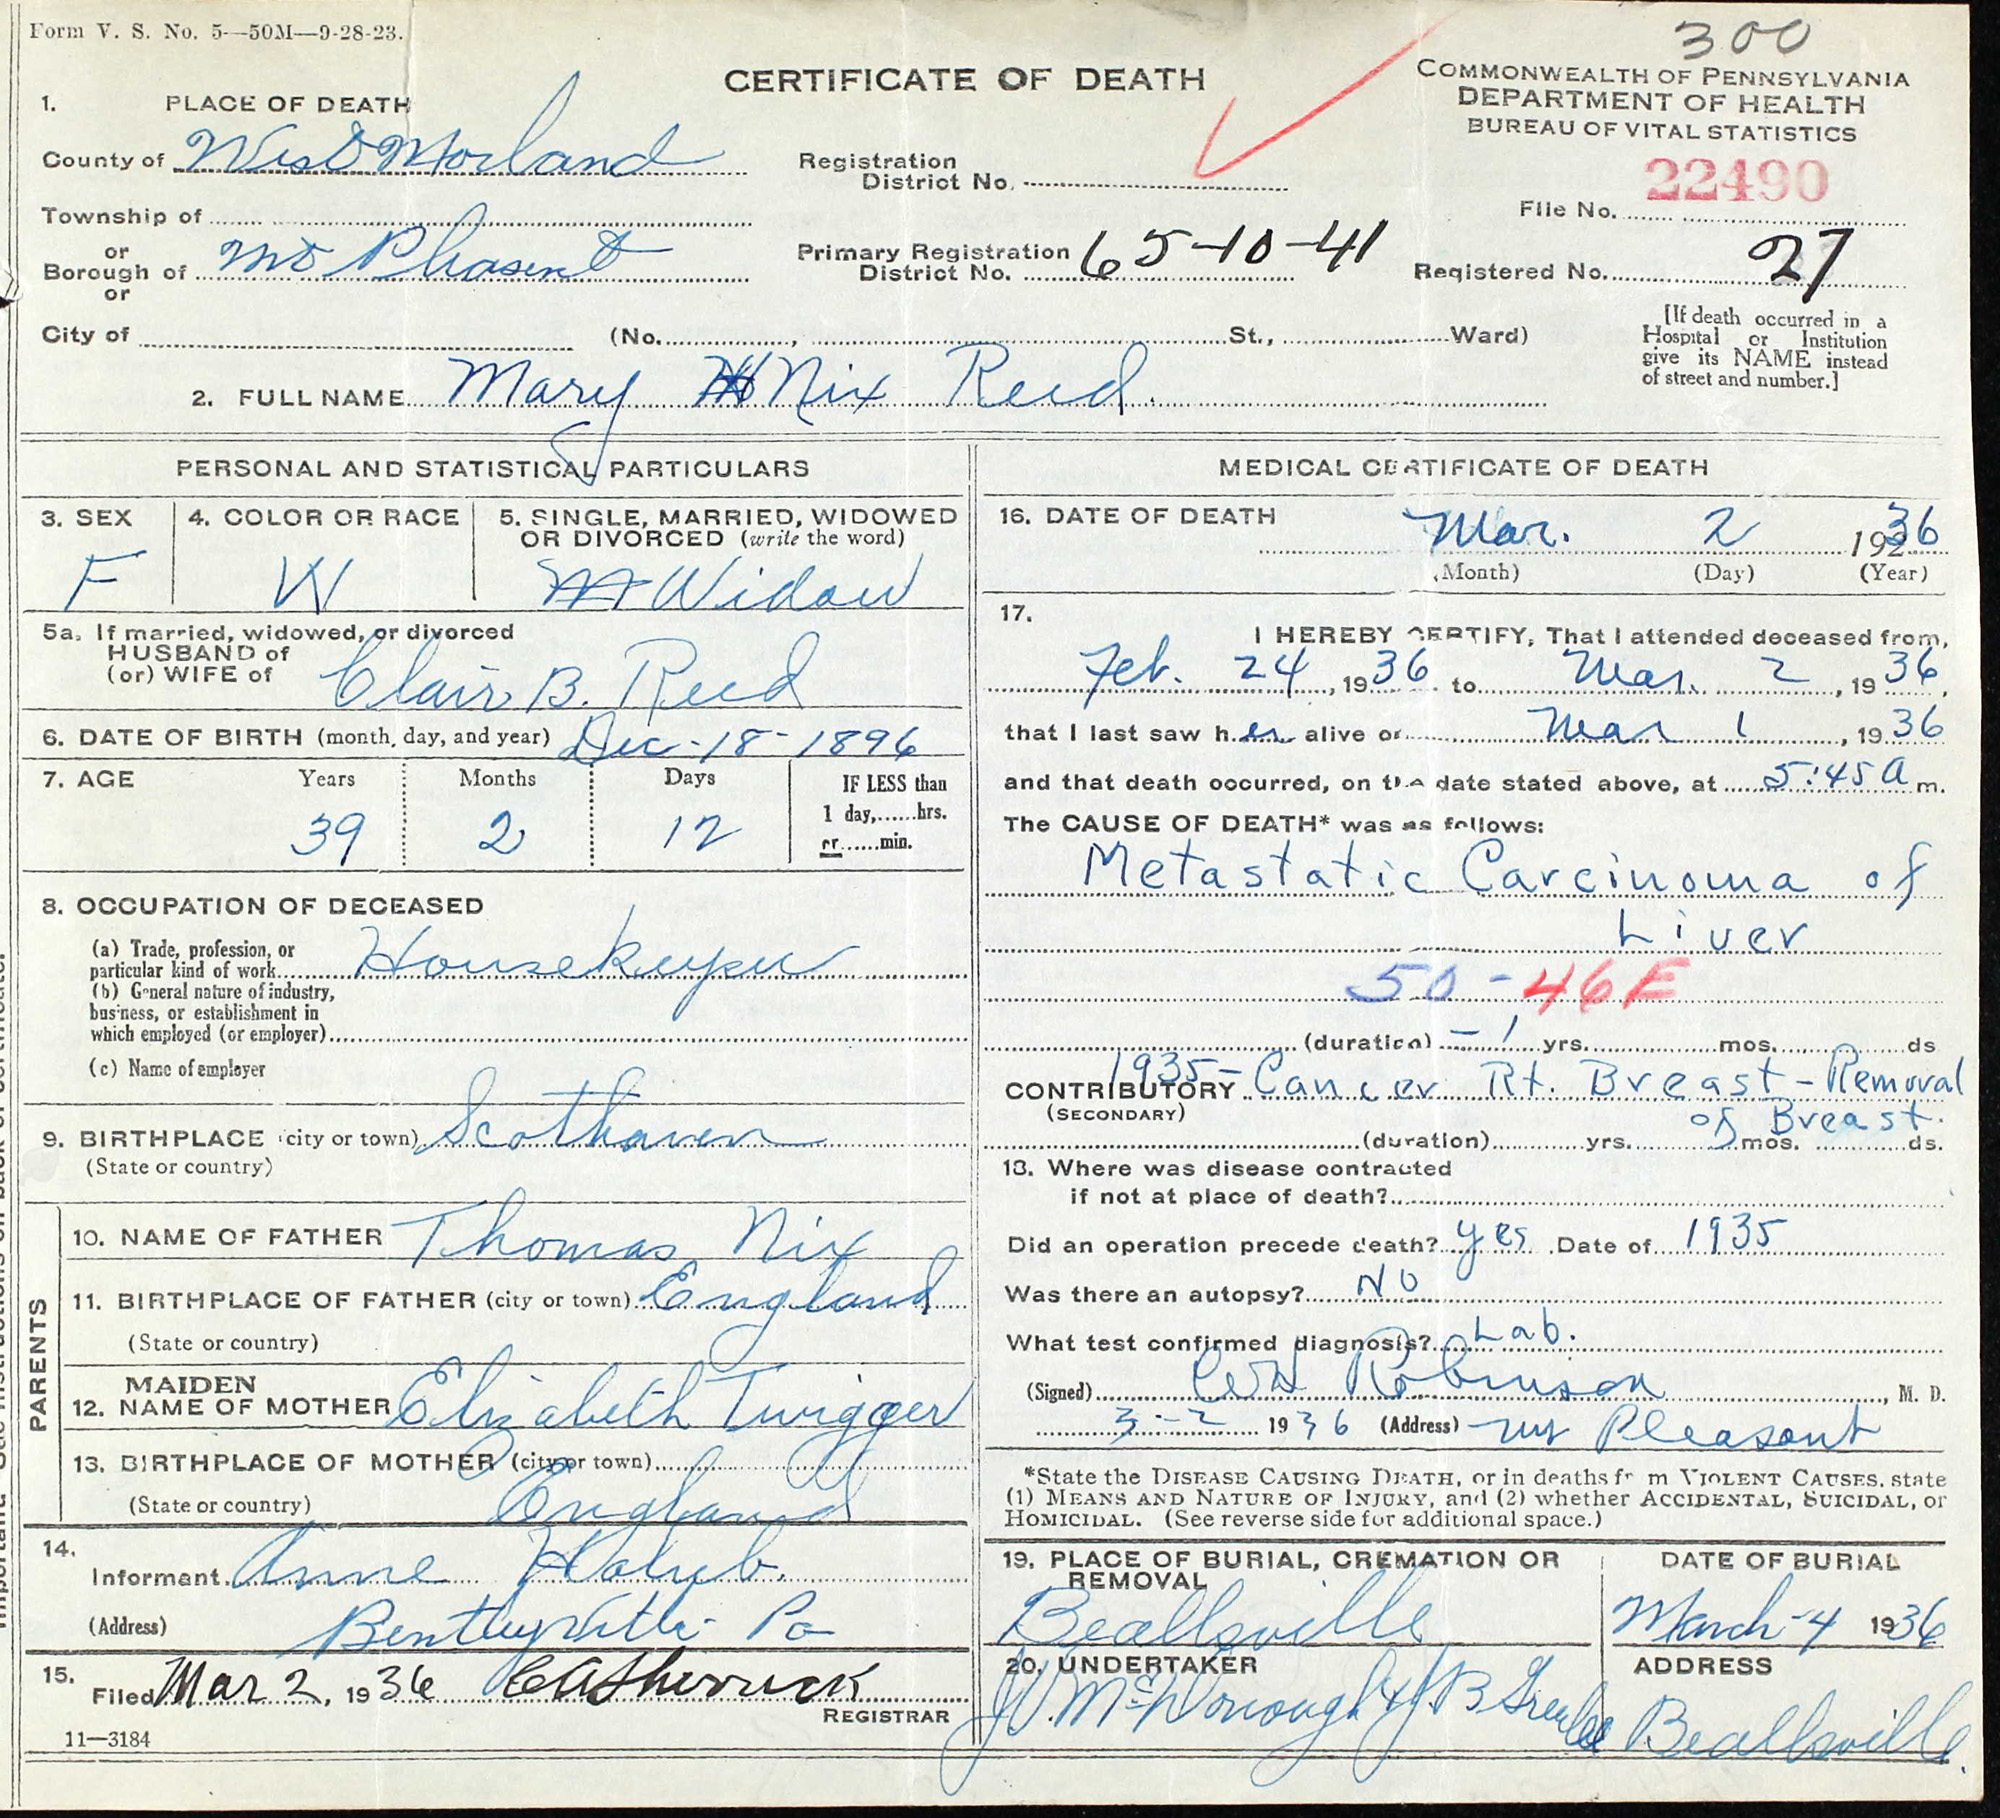 Form V. S. No. 5—50M—9-28-23.
300
CERTIFICATE OF DEATH
COMMONWEALTH OF PENNSYLVANIA
DEPARTMENT OF HEALTH
BUREAU OF VITAL STATISTICS
1. PLACE OF DEATH
County of WestMorland
Registration District No.
File No. 22490
Township of
or
Borough of Mt Pleasent
or
Primary Registration District No. 65-10-41
Registered No. 27
City of (No. , St., Ward)
[If death occurred in a Hospital or Institution give its NAME instead of street and number.]
2. FULL NAME Mary Nix Reed.
PERSONAL AND STATISTICAL PARTICULARS
3. SEX
F
4. COLOR OR RACE
W
5. SINGLE, MARRIED, WIDOWED OR DIVORCED (write the word)
Widow
5a. If married, widowed, or divorced
HUSBAND of
(or) WIFE of
Clair B. Reed
6. DATE OF BIRTH (month, day, and year) Dec-18-1896
7. AGE Years Months Days IF LESS than
39 2 12 1 day,......hrs.
or......min.
8. OCCUPATION OF DECEASED
(a) Trade, profession, or
particular kind of work Housekeeper
(b) General nature of industry,
business, or establishment in
which employed (or employer)
(c) Name of employer
9. BIRTHPLACE (city or town) Scothaven
(State or country)
PARENTS
10. NAME OF FATHER Thomas Nix
11. BIRTHPLACE OF FATHER (city or town) England
(State or country)
12. MAIDEN NAME OF MOTHER Elizabeth Twigger
13. BIRTHPLACE OF MOTHER (city or town)
(State or country) England
14.
Informant Anne Holub.
(Address) Bentleyville Pa
15.
Filed Mar 2, 1936 REGISTRAR
11—3184
MEDICAL CERTIFICATE OF DEATH
16. DATE OF DEATH Mar. 2 1936
(Month) (Day) (Year)
17.
I HEREBY CERTIFY, That I attended deceased from,
Feb. 24, 1936 to Mar. 2, 1936,
that I last saw her alive on Mar 1, 1936
and that death occurred, on the date stated above, at 5:45 A m.
The CAUSE OF DEATH* was as follows:
Metastatic Carcinoma of
Liver
50 - 46F
(duration) - 1 yrs. mos. ds
CONTRIBUTORY 1935- Cancer Rt. Breast - Removal
(SECONDARY) of Breast.
(duration) yrs. mos. ds.
18. Where was disease contracted
if not at place of death?
Did an operation precede death? yes Date of 1935
Was there an autopsy? NO
What test confirmed diagnosis? Lab.
(Signed) Robinson, M. D.
3-2 1936 (Address) Mt Pleasant
*State the DISEASE CAUSING DEATH, or in deaths from VIOLENT CAUSES, state
(1) MEANS AND NATURE OF INJURY, and (2) whether ACCIDENTAL, SUICIDAL, or
HOMICIDAL. (See reverse side for additional space.)
19. PLACE OF BURIAL, CREMATION OR REMOVAL
Beallsville
DATE OF BURIAL
March-4 1936
20. UNDERTAKER
ADDRESS
Beallsville.